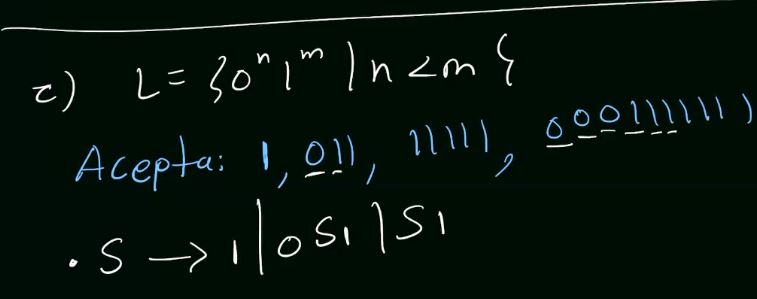 c) L = {0ⁿ1ᵐ | n < m}
Acepta: 1, 011, 11111, 00011111111
. S → 1 | 0S1 | S1